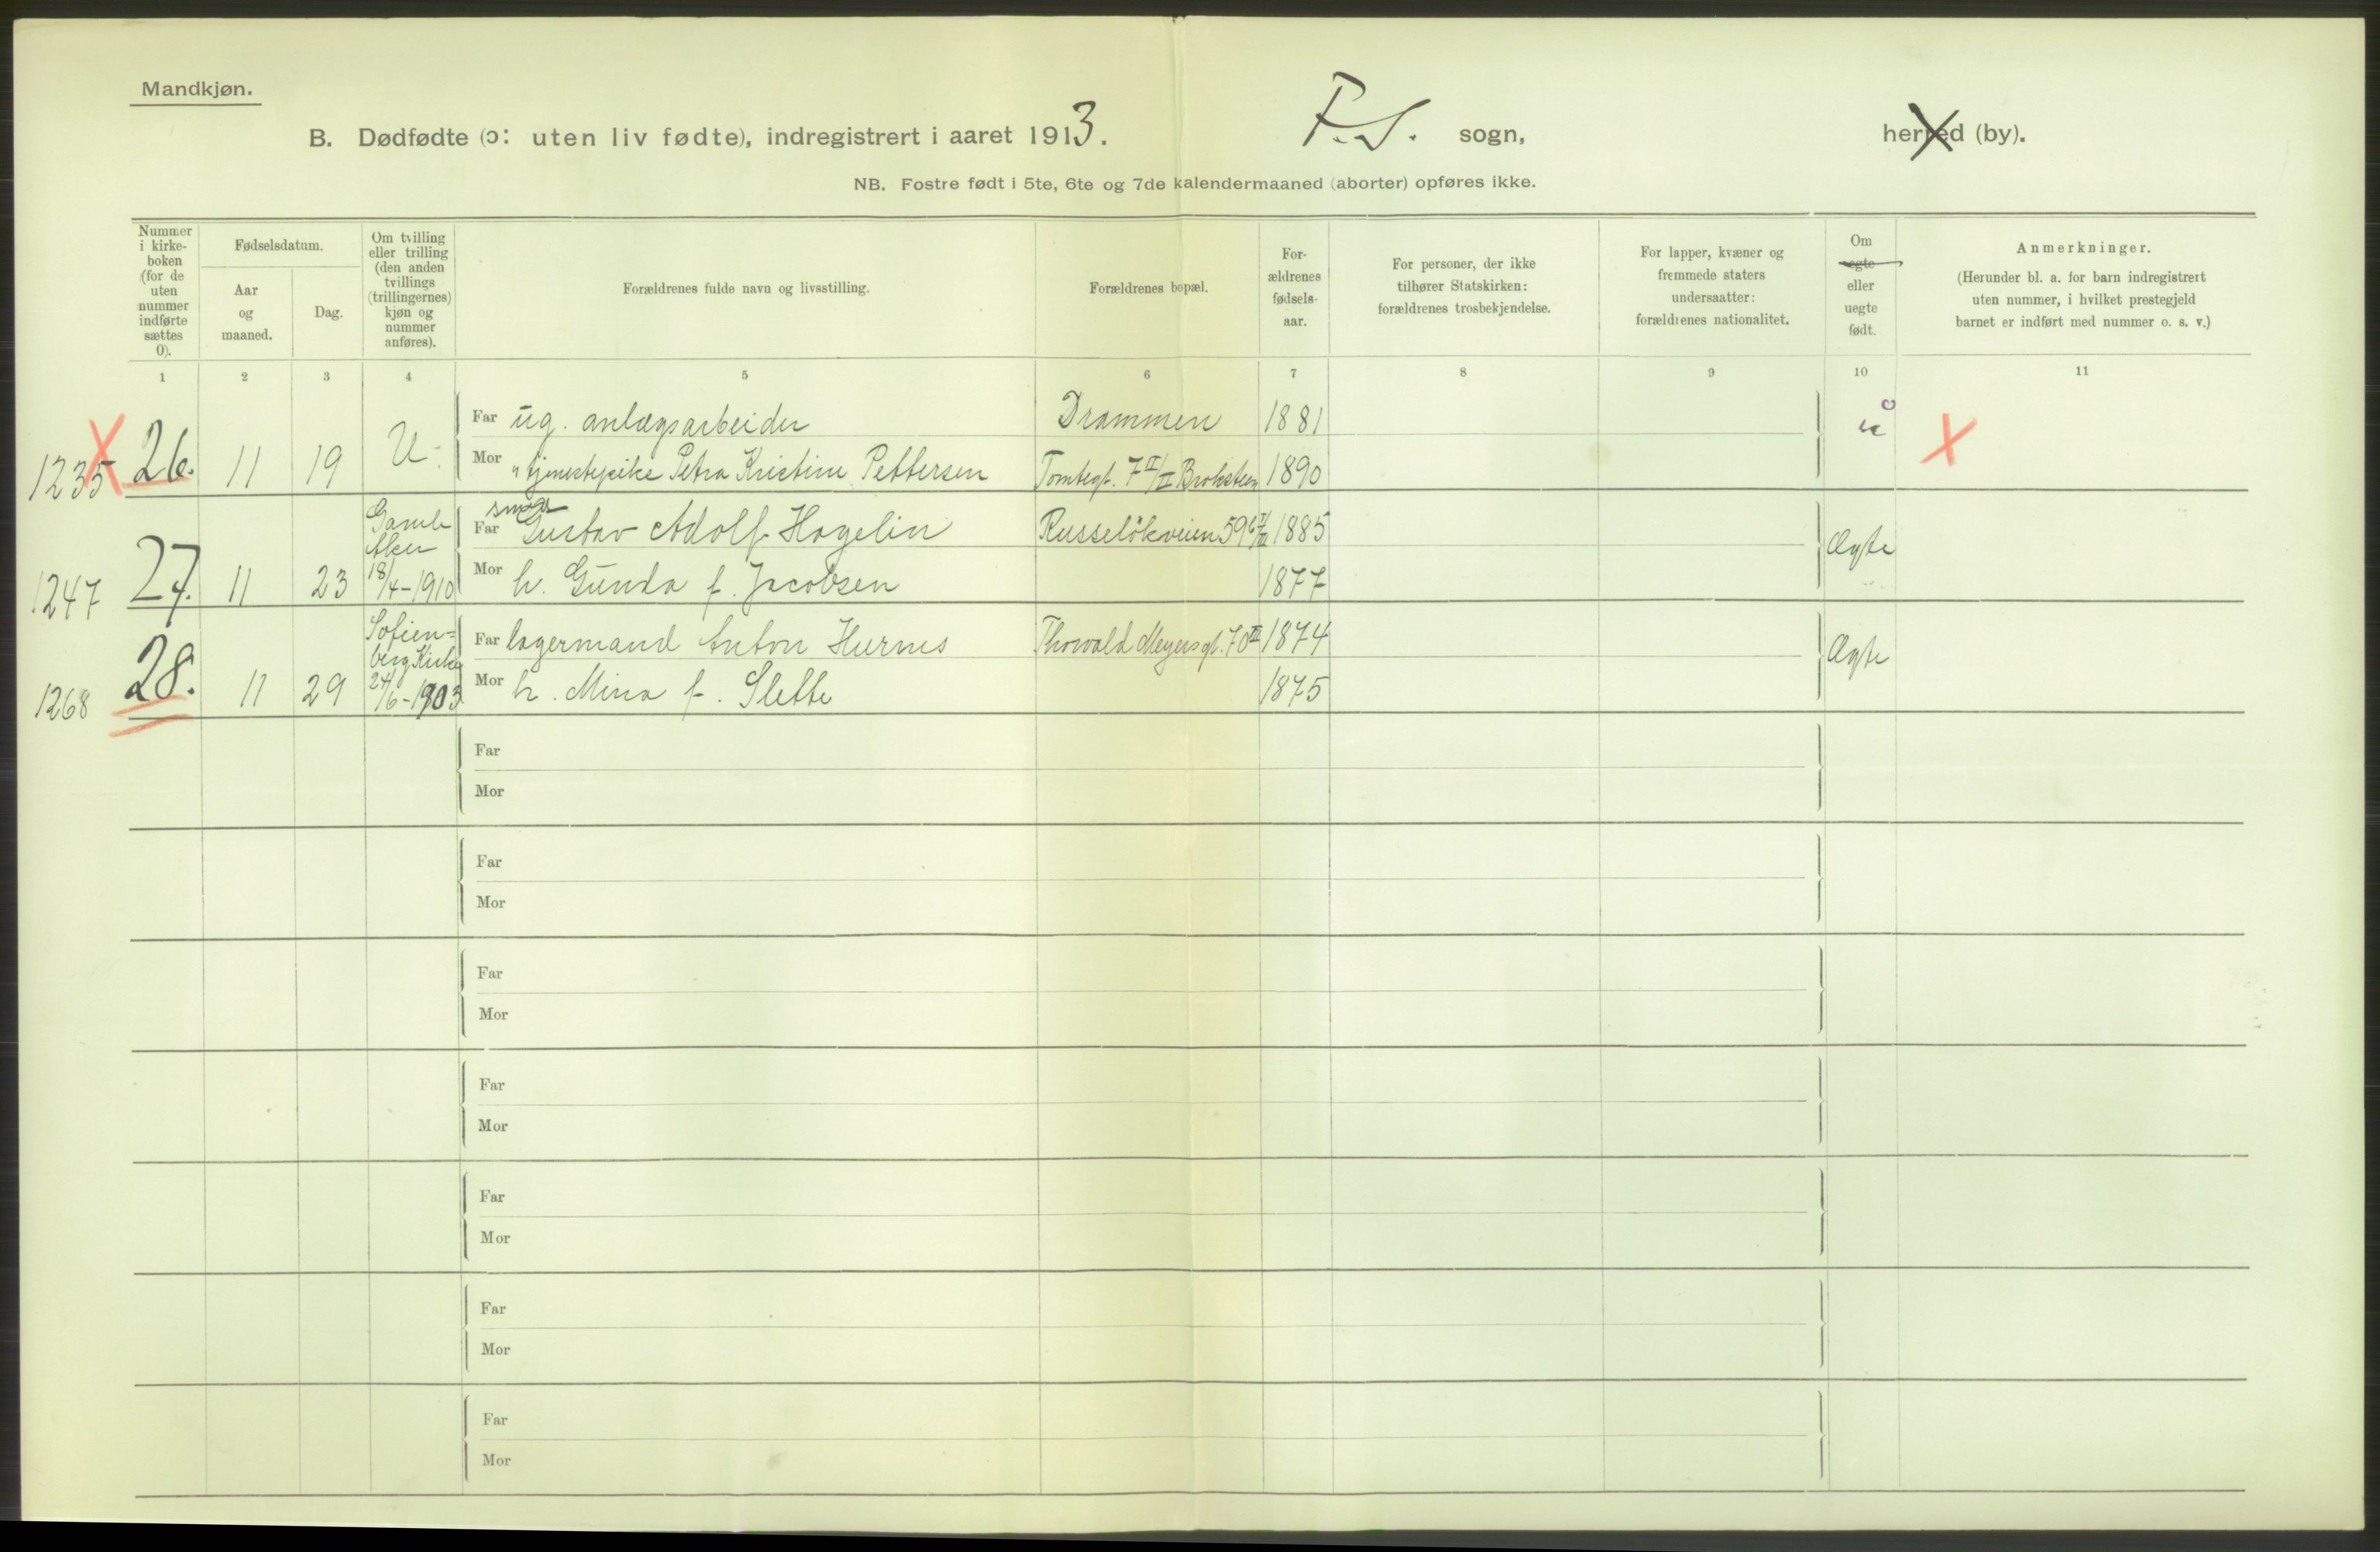 Mandkjøn.
B. Dødfødte (ɔ: uten liv fødte), indregistrert i aaret 1913. F. S. sogn, herred (by).
NB. Fostre født i 5te, 6te og 7de kalendermaaned (aborter) opføres ikke.
Nummer i kirke-boken (for de uten nummer indførte sættes 0).
Fødselsdatum.
Aar og maaned.
Dag.
Om tvilling eller trilling (den anden tvillings (trillingernes) kjøn og nummer anføres).
Forældrenes fulde navn og livsstilling.
Forældrenes bopæl.
For-ældrenes fødsels-aar.
For personer, der ikke tilhører Statskirken: forældrenes trosbekjendelse.
For lapper, kvæner og fremmede staters undersaatter: forældrenes nationalitet.
Om egte eller uegte født.
Anmerkninger.
(Herunder bl. a. for barn indregistrert uten nummer, i hvilket prestegjeld barnet er indført med nummer o. s. v.)
1 2 3 4 5 6 7 8 9 10 11
Far ug. anlægsarbeider Drammen 1881
1235 26. 11 19 U. Mor " tjenestepike Petra Kristine Pettersen Tomtegt. 7 II/II 1890
Gamle Aker 18/4-1910
Far Gustav Adolf Hagelin Russeløkveien 59 1885 Ægte
1247 27. 11 23 Mor h. Gunda f. Jacobsen 1877
Sofien-berg Kirke 24/6-1903
Far lagermand Anton Hurnes Thorvald Meyersgt. 70 II 1874 Ægte
1268 28. 11 29 Mor h. Mina f. Slette 1875
Far
Mor
Far
Mor
Far
Mor
Far
Mor
Far
Mor
Far
Mor
Far
Mor